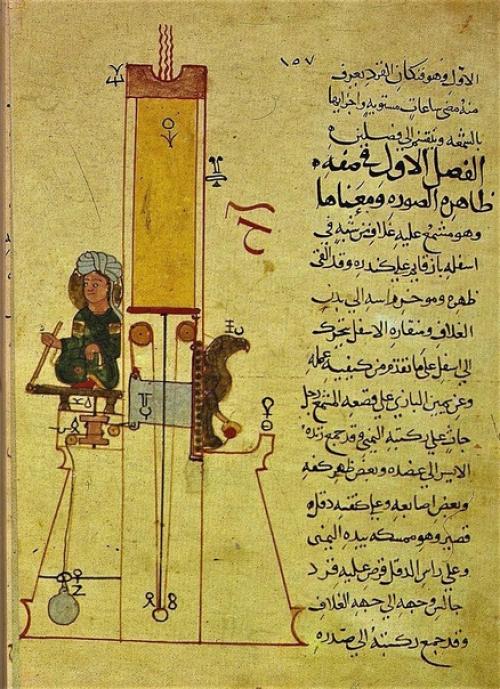 ١٥٧
الاول وهو فنكان القرد يعرف
منه مضى ساعات مستويه واجزايها
بالشمعه وينقسم الى فصلين
الفصل الاول في صفه
ظاهره الصوره ومعناها
وهو مشتمع عليه غلاف من شبه في
اسفله باز قايم على كندره وقد القى
ظهره وموخر راسه الى بدن
الغلاف ومنقاره الاسفل يتحرك
الى اسفل على ما تقدم من كيفيه عمله
وعن يمين البازي على قصعه المشتمع رجل
جاث على ركبته اليمنى وقد جمع زنده
الايسر الى عضده وبعض ظهر كفه
وبعض اصابعه وعلى كتفه دقل
قصير وهو ممسكه بيده اليمنى
وعلى راس الدقل قرص عليه قرد
جالس وجهه الى جهه الغلاف
وقد جمع ركبته الى صدره